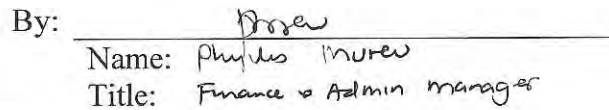 By:
Name: Phyllis Mureu
Title: Finance & Admin manager